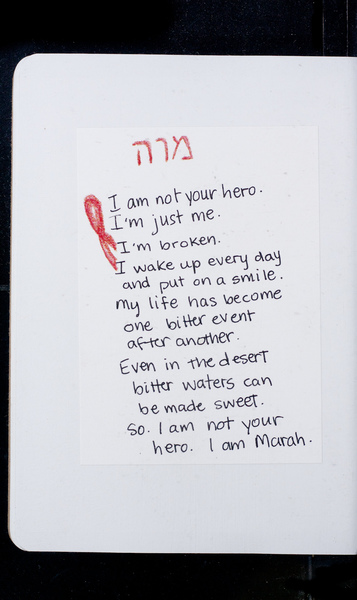 מרה
I am not your hero.
I'm just me.
I'm broken.
I wake up every day
and put on a smile.
my life has become
one bitter event
after another.
Even in the desert
bitter waters can
be made sweet.
So. I am not your
hero. I am Marah.